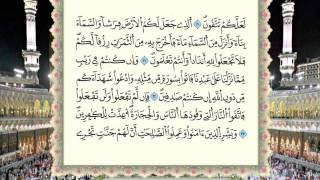 لَعَلَّكُمْ تَتَّقُونَ ۝ ٱلَّذِى جَعَلَ لَكُمُ ٱلْأَرْضَ فِرَٰشًا وَٱلسَّمَآءَ
بِنَآءً وَأَنزَلَ مِنَ ٱلسَّمَآءِ مَآءً فَأَخْرَجَ بِهِۦ مِنَ ٱلثَّمَرَٰتِ رِزْقًا لَّكُمْ
فَلَا تَجْعَلُوا۟ لِلَّهِ أَندَادًا وَأَنتُمْ تَعْلَمُونَ ۝ وَإِن كُنتُمْ فِى رَيْبٍ
مِّمَّا نَزَّلْنَا عَلَىٰ عَبْدِنَا فَأْتُوا۟ بِسُورَةٍ مِّن مِّثْلِهِۦ وَٱدْعُوا۟ شُهَدَآءَكُم
مِّن دُونِ ٱللَّهِ إِن كُنتُمْ صَٰدِقِينَ ۝ فَإِن لَّمْ تَفْعَلُوا۟ وَلَن تَفْعَلُوا۟
فَٱتَّقُوا۟ ٱلنَّارَ ٱلَّتِى وَقُودُهَا ٱلنَّاسُ وَٱلْحِجَارَةُ أُعِدَّتْ لِلْكَٰفِرِينَ
۝ وَبَشِّرِ ٱلَّذِينَ ءَامَنُوا۟ وَعَمِلُوا۟ ٱلصَّٰلِحَٰتِ أَنَّ لَهُمْ جَنَّٰتٍ تَجْرِى